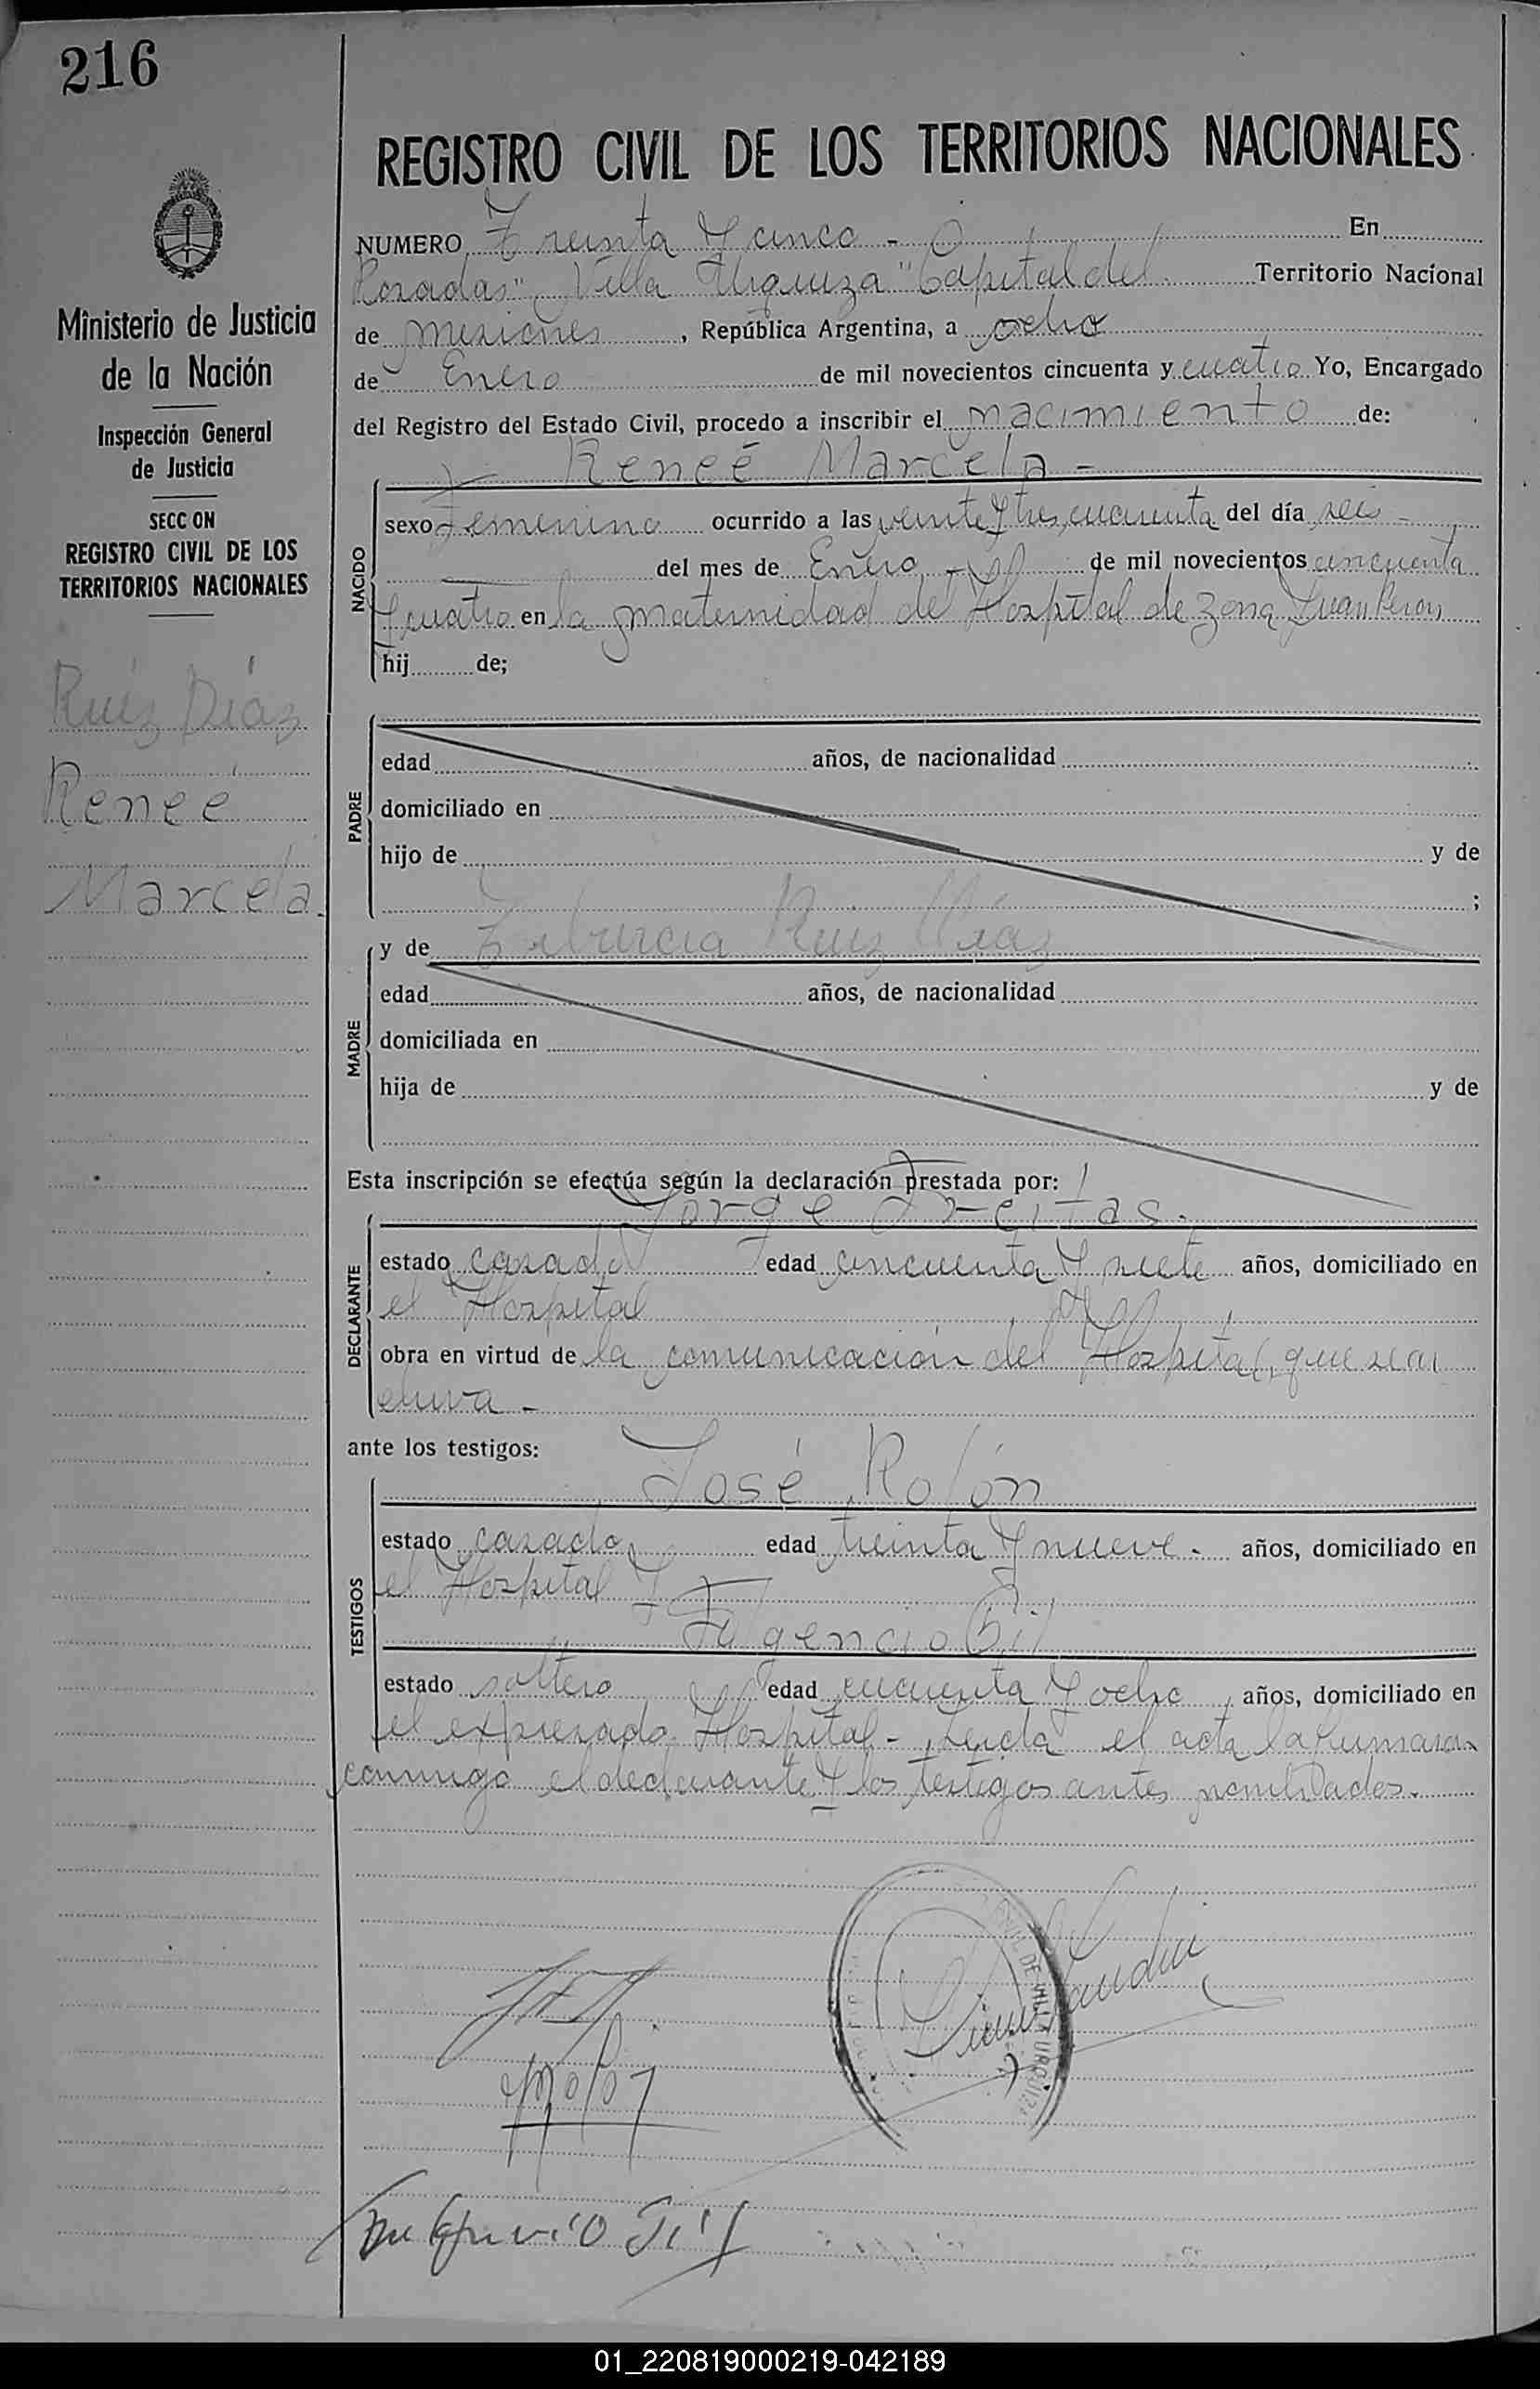 216
REGISTRO CIVIL DE LOS TERRITORIOS NACIONALES
NUMERO Treinta y cinco - En
Posadas "Villa Urquiza" Capital del Territorio Nacional
de Misiones, República Argentina, a ocho
de Enero de mil novecientos cincuenta y cuatro Yo, Encargado
del Registro del Estado Civil, procedo a inscribir el nacimiento de:
Reneé Marcela -
Ministerio de Justicia
de la Nación
Inspección General
de Justicia
SECC ON
REGISTRO CIVIL DE LOS
TERRITORIOS NACIONALES
Ruiz Diáz
Reneé
Marcela.
NACIDO
sexo femenino ocurrido a las veinte y tres, cuarenta del día seis -
del mes de Enero - de mil novecientos cincuenta
y cuatro en la maternidad del Hospital de Zona Juan Peron
hij de;
PADRE
edad años, de nacionalidad
domiciliado en
hijo de y de
;
MADRE
y de Tiburcia Ruiz Diaz
edad años, de nacionalidad
domiciliada en
hija de y de
Esta inscripción se efectúa según la declaración prestada por:
Jorge Freitas.
DECLARANTE
estado casado edad cincuenta y siete años, domiciliado en
el Hospital
obra en virtud de la comunicación del Hospital, que se ar
chiva -
ante los testigos:
José Rolón
TESTIGOS
estado casado, edad treinta y nueve - años, domiciliado en
el Hospital y
Fulgencio Gil
estado soltero edad cuarenta y ocho, años, domiciliado en
el expresado Hospital - Leida el acta la firmaron
conmigo el declarante y los testigos antes nombrados.
CIVIL DE VILLA URQUIZA
Fulgencio Gil
01_220819000219-042189